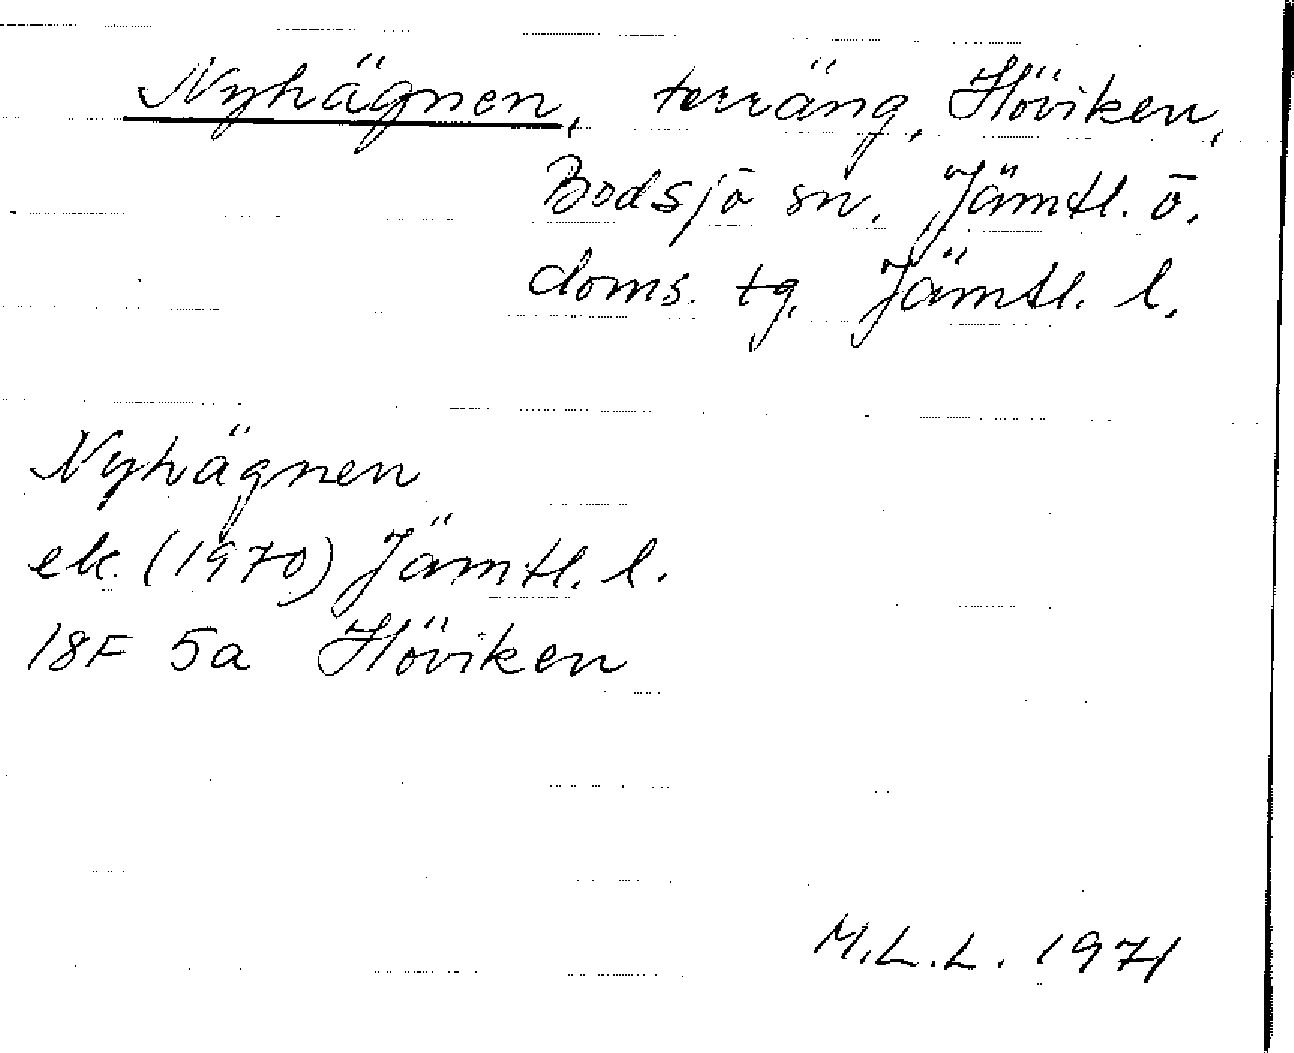 Nyhägnen, terräng, Höviken,
Bodsjö sn, Jämtl. ö.
doms. tg, Jämtl. l.
Nyhägnen
ek. (1970) Jämtl. l.
18F 5a Höviken
M.L.L. 1971